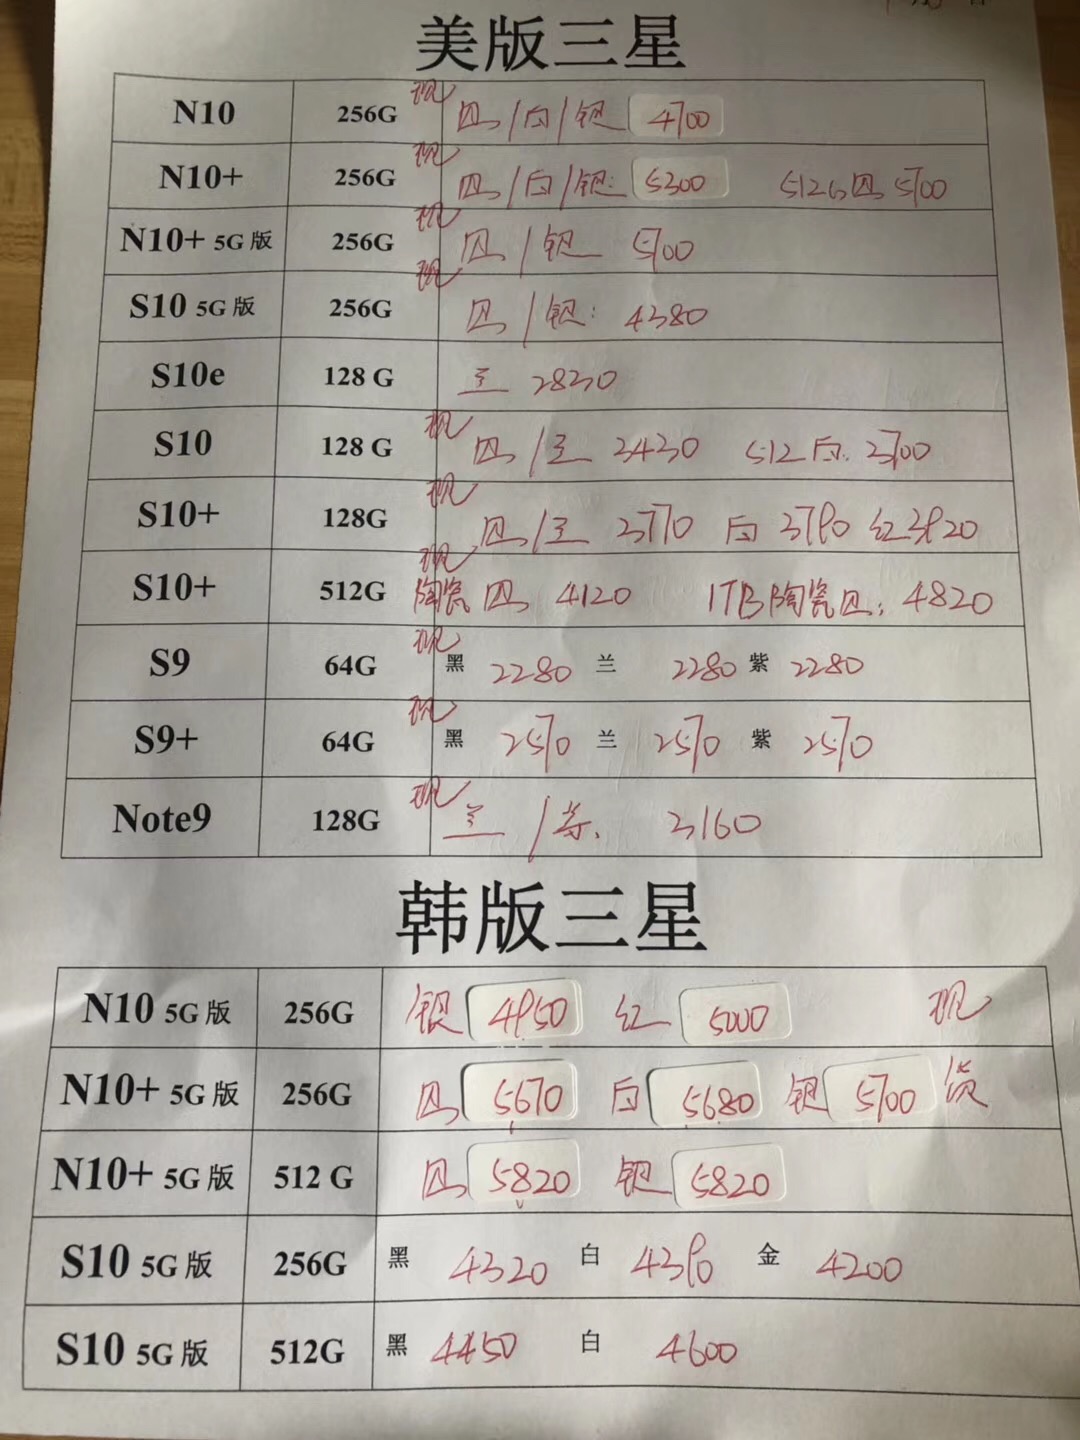 美版三星
N10 256G 现 黑/白/银 4700
N10+ 256G 现 黑/白/银: 5300 512G黑 5700
N10+ 5G版 256G 现 黑/银 5700
S10 5G版 256G 现 黑/银: 4380
S10e 128 G 兰 2830
S10 128 G 现 黑/兰 3430 512白. 3700
S10+ 128G 现 黑/兰 3770 白 3790 红3920
S10+ 512G 现 陶瓷黑 4120 1TB陶瓷黑: 4820
S9 64G 现 黑 2280 兰 2280 紫 2280
S9+ 64G 现 黑 2570 兰 2570 紫 2570
Note9 128G 现 兰 / 3160
韩版三星
N10 5G版 256G 银 4950 红 5000 现
N10+ 5G版 256G 黑 5670 白 5680 银 5700 货
N10+ 5G版 512 G 黑 5820 银 5820
S10 5G版 256G 黑 4320 白 4390 金 4200
S10 5G版 512G 黑 4450 白 4600